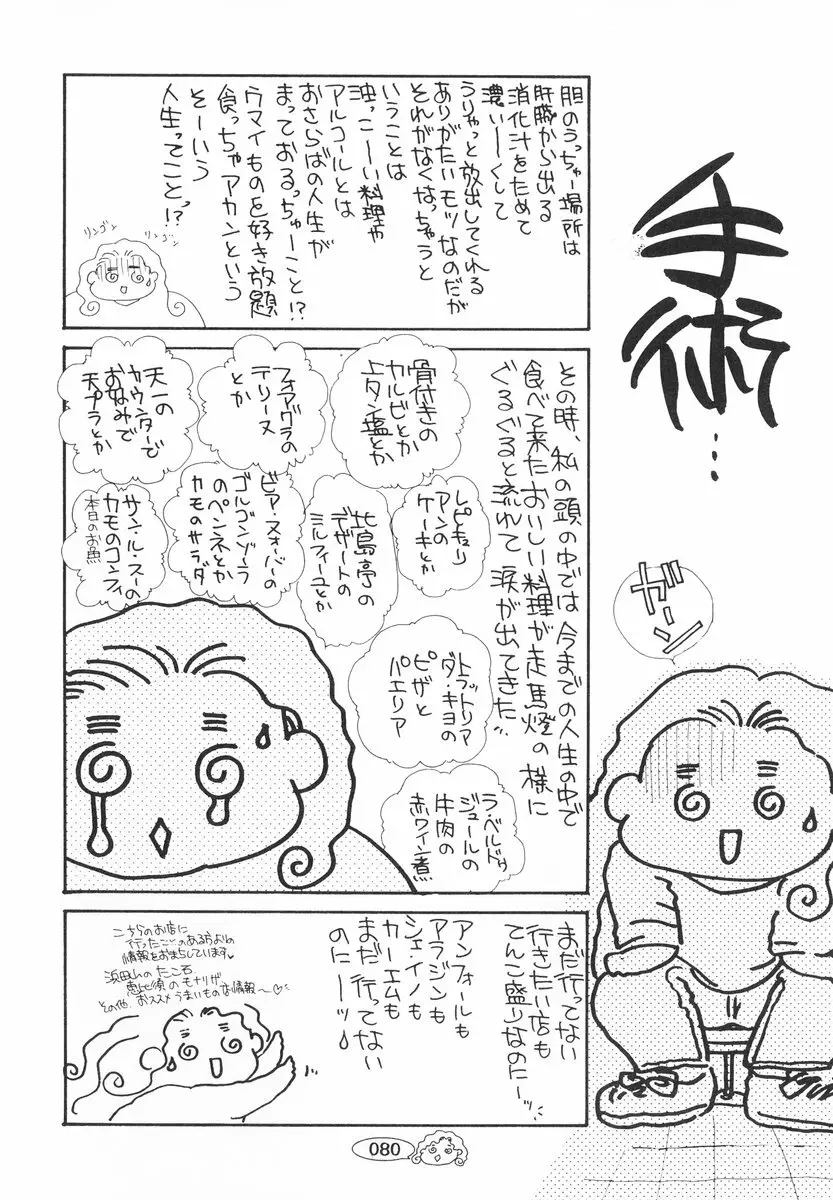 手術…
ガーン
胆のうっちゅー場所は
肝臓から出る
消化汁をためて
濃い〜くして
うりゃっと放出してくれる
ありがたいモツなのだが
それがなくなっちゃうと
いうことは
油っこーい料理や
アルコールとは
おさらばの人生が
まっておるっちゅーこと!?
ウマイものを好き放題
食っちゃアカンという
そーいう
人生ってこと!?
リンゴン
リンゴン
その時、私の頭の中では今までの人生の中で
食べて来たおいしい料理が走馬燈の様に
ぐるぐると流れて涙が出てきた…
骨付きの
カルビとか
上タン塩とか
フォアグラの
テリーヌ
とか
天一の
カウンターで
お好みで
天プラとか
レピキュリ
アンの
ケーキとか
比島亭の
デザートの
ミルフィーユとか
ビア・ヌォーバーの
ゴルゴンゾーラ
のペンネとか
カモのサラダ
サン・ル・スーの
カモのコンフィ
本日のお魚
トラットリア
ダ・キヨの
ピザと
パエリア
ラ・ベルドゥ
ジュールの
牛肉の
赤ワイン煮
まだ行ってない
行きたい店も
てんこ盛りなのにー
アンフォールも
アラジンも
シェ・イノも
カーエムも
まだ行ってない
のにーッ
こちらのお店に
行ったことのある方よりの
情報をおまちしています
浜田山のたこ石
恵比須のモナリザ
その他、おススメうまいものな情報〜
080